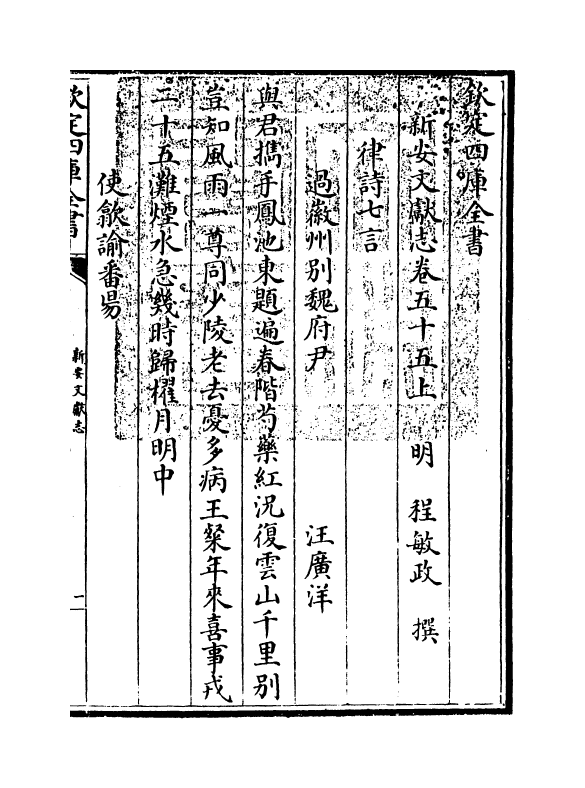 欽定四庫全書
新安文獻志卷五十五上　明　程敏政　撰
律詩七言
過徽州別魏府尹　汪廣洋
與君攜手鳳池東題遍春階芍藥紅況復雲山千里別
豈知風雨一尊同少陵老去憂多病王粲年來喜事戎
三十五灘煙水急幾時歸櫂月明中
使歙諭番昜
欽定四庫全書
新安文獻志
二